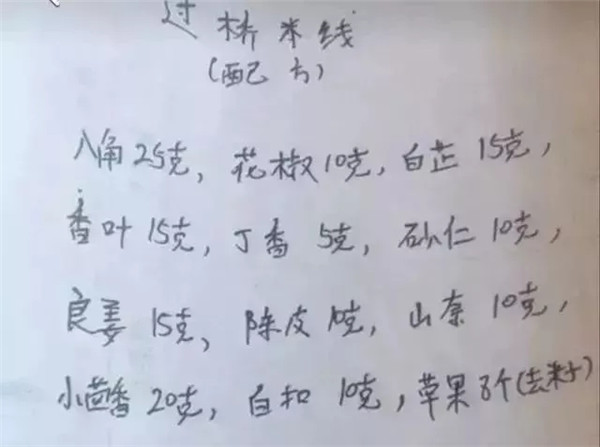 过桥米线
(配方)
八角25克，花椒10克，白芷15克，
香叶15克，丁香5克，砂仁10克，
良姜15克，陈皮10克，山奈10克，
小茴香20克，白扣10克，草果3个(去籽)